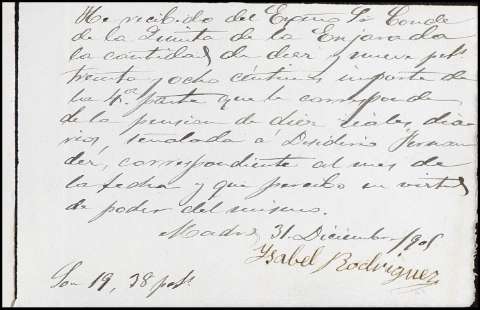 He recibido del Exmo Sr Conde
de la Quinta de la Enjarada
la cantidad de diez y nueve pts
treinta y ocho céntimos, importe de
la 4ª parte que le corresponde
de la pension de diez reales dia
rios, señalada á Desiderio Fernan
dez, correspondiente al mes de
la fecha y que percibo en virtud
de poder del mismo.
Madrid 31 Diciembre 1905
Ysabel Rodriguez
Son 19, 38 pts